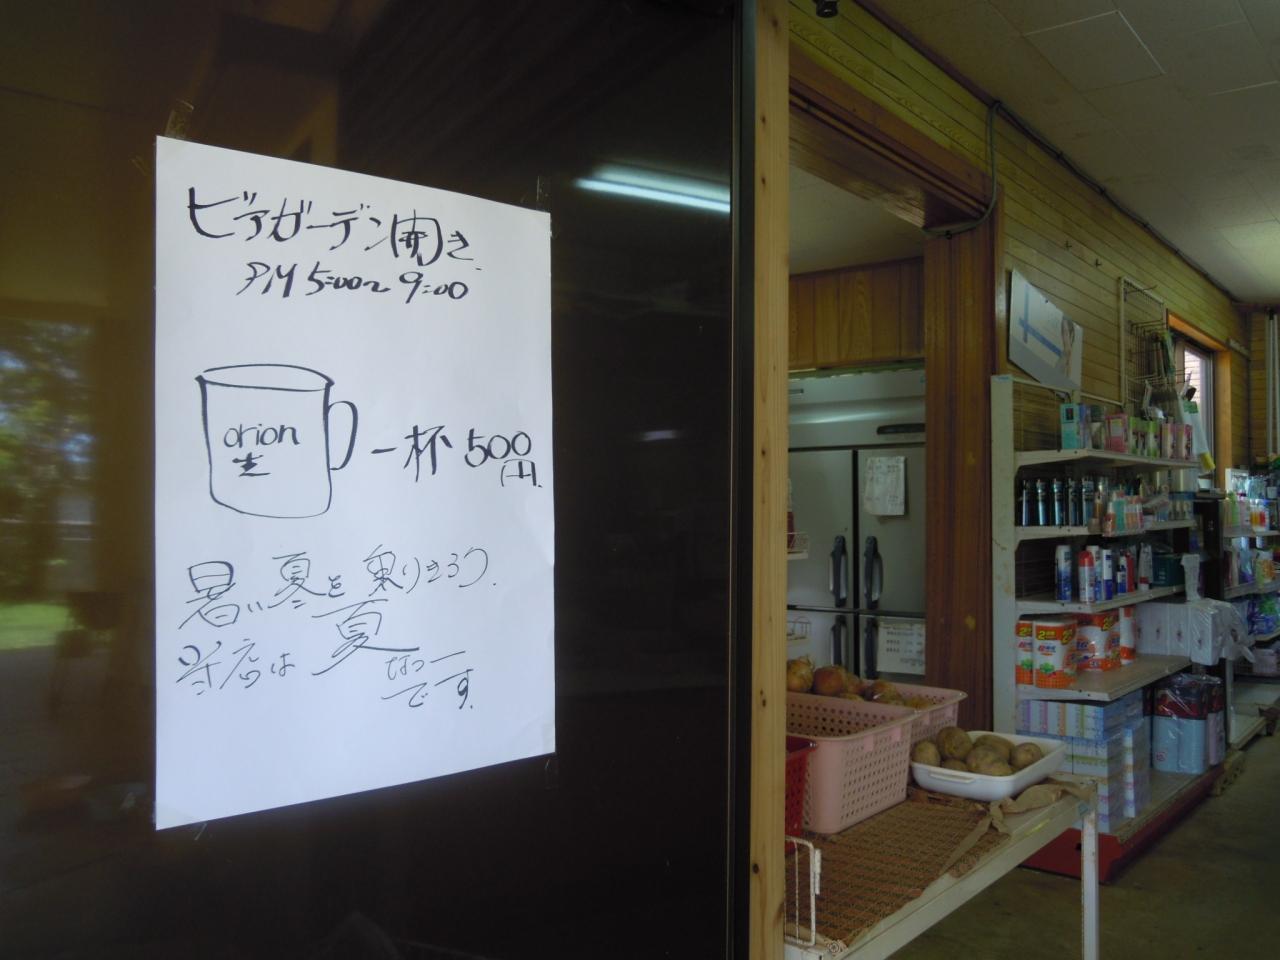 ビアガーデン開き
PM 5:00〜9:00
orion
生
一杯 500円
暑い夏を乗りきろう.
当店は
夏
なつ一
です.